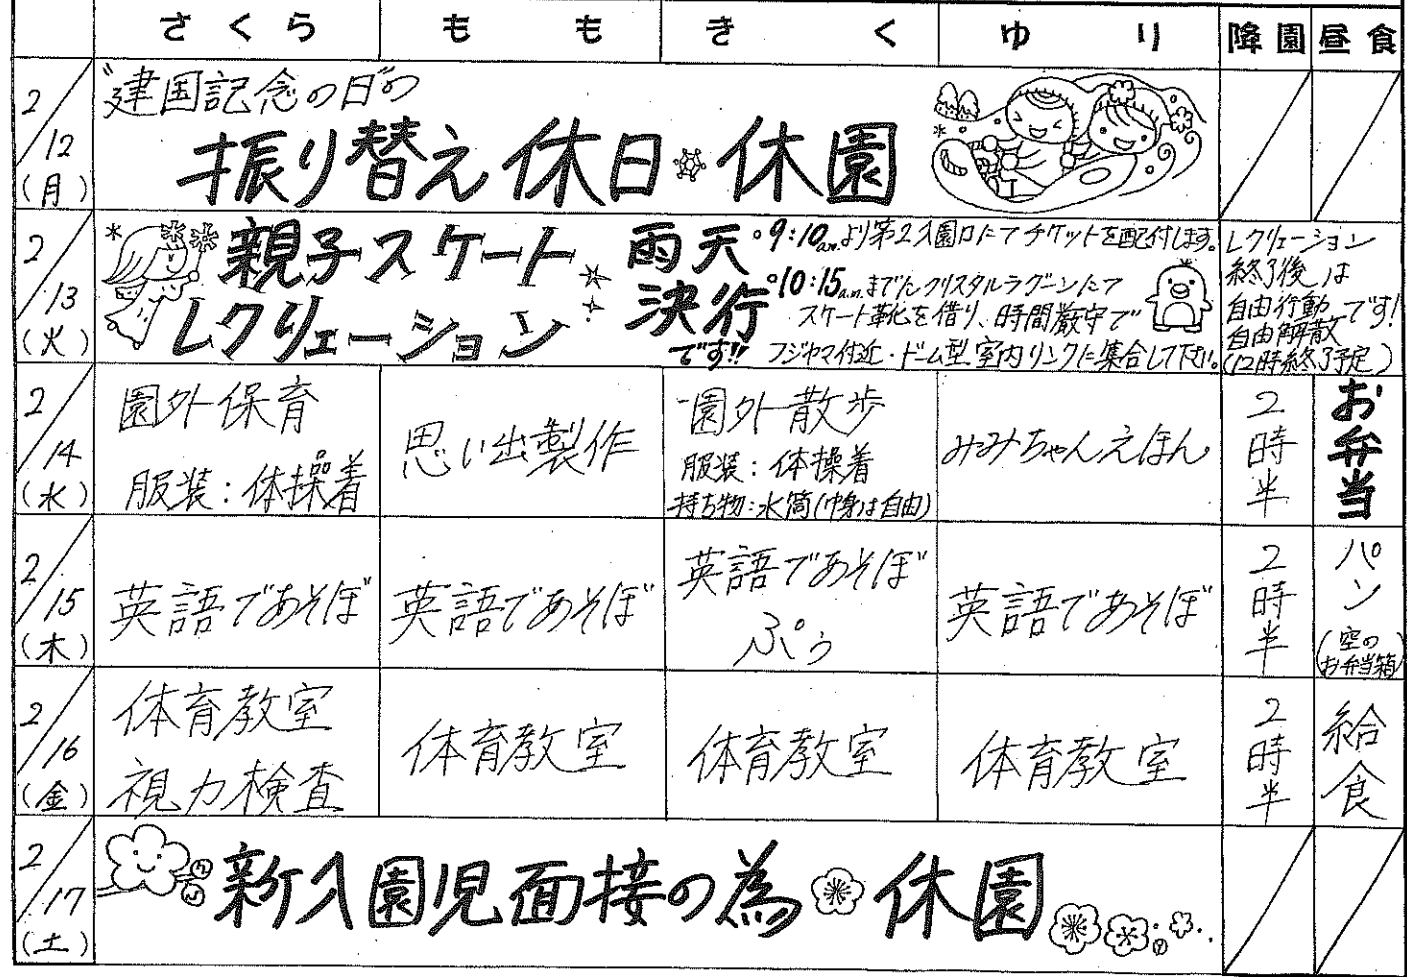 さくら もも きく ゆり 降園 昼食
2/12(月)
"建国記念の日"の
振り替え休日 休園
2/13(火)
親子スケート
レクリェーション
雨天
決行
です!!
。9:10a.m.より第2入園口にてチケットを配付します。
。10:15a.m.までにクリスタルラグーンにて
スケート靴を借り、時間厳守で
フジヤマ付近・ドーム型室内リンクに集合して下さい。
レクリェーション
終了後は
自由行動
自由解散です!
(12時終了予定)
2/14(水)
園外保育
服装:体操着
思い出製作
園外散歩
服装:体操着
持ち物:水筒(中身は自由)
みみちゃんえほん
2時半
お弁当
2/15(木)
英語であそぼ
英語であそぼ
英語であそぼ
ぷぅ
英語であそぼ
2時半
パン
(空の
お弁当箱)
2/16(金)
体育教室
視力検査
体育教室
体育教室
体育教室
2時半
給食
2/17(土)
新入園児面接の為 休園